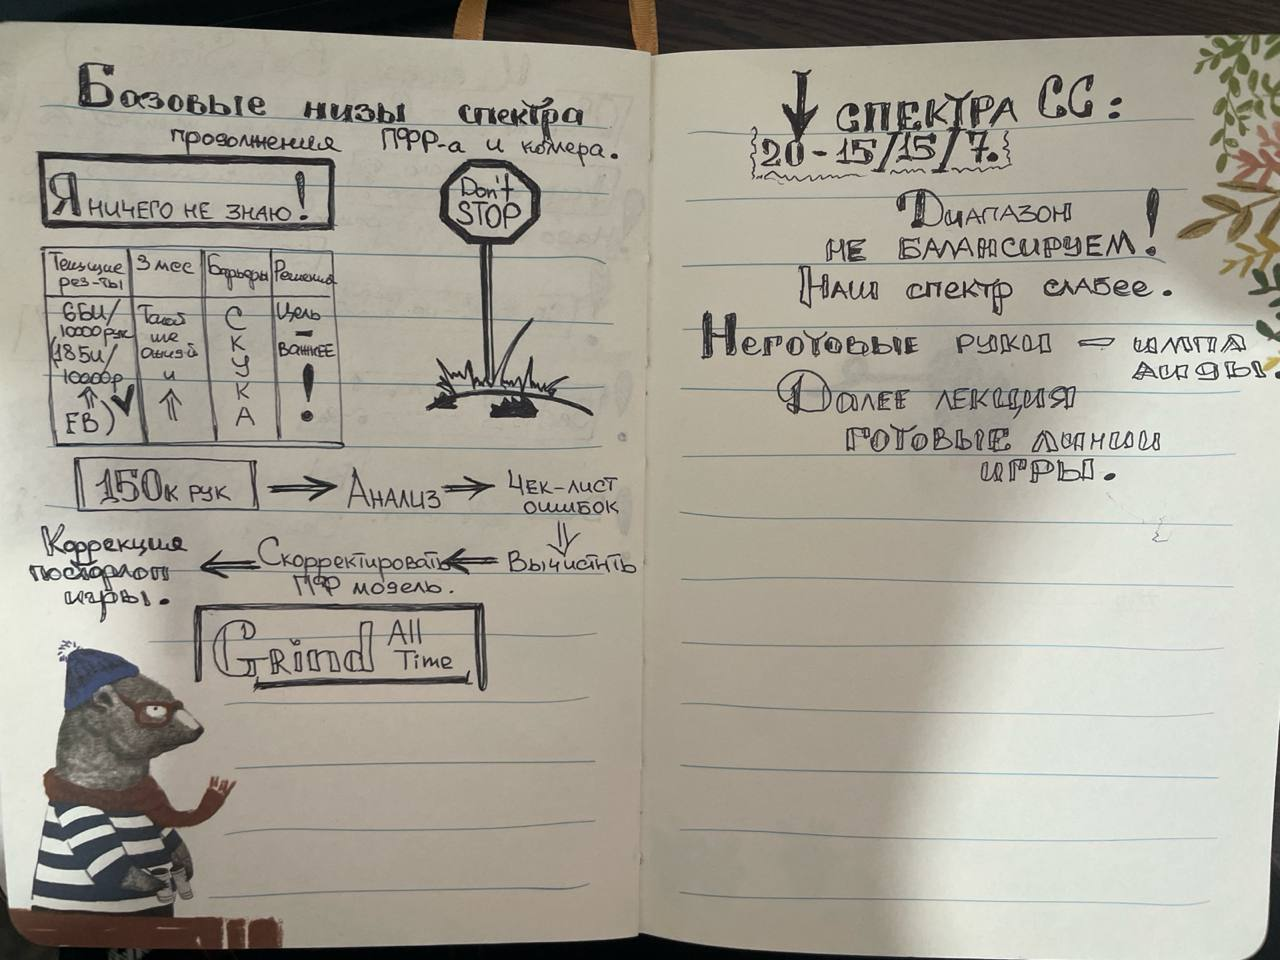 Базовые низы спектра
продолжения ПФР-а и колера.
Я НИЧЕГО НЕ ЗНАЮ!
Don't
STOP
Текущие рез-ты
3 мес
Барьеры
Решения
6БИ/
10000 рук
(18БИ/
10000р
⇑
EB) ✓
Такой
же
и
⇑
С
К
У
К
А
Цель
—
ВАЖНЕЕ
!
150К РУК → АНАЛИЗ → ЧЕК-ЛИСТ
ОШИБОК
⇓
ВЫЧИСТИТЬ
← Скорректировать
ПФ модель.
← Коррекция
постфлоп
игры.
GRind All
Time
↓ СПЕКТРА СС:
20-15/15/7.
Диапазон
НЕ БАЛАНСИРУЕМ!
Наш спектр слабее.
Неготовые руки — ИМПА
АИДЫ.
Далее лекция
ГОТОВЫЕ ЛИНИИ
ИГРЫ.